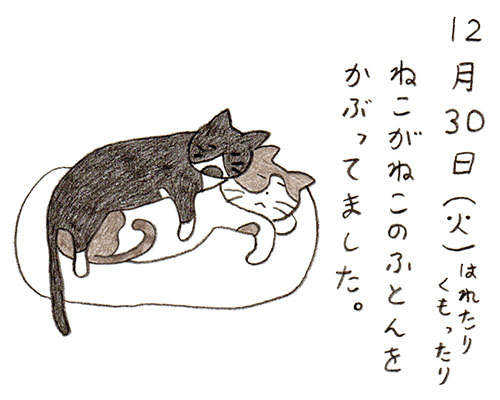 12月30日(火)はれたり
くもったり
ねこがねこのふとんを
かぶってました。